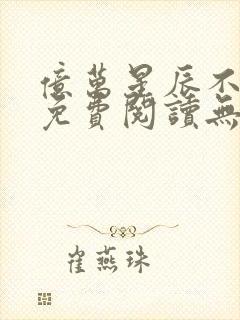 億萬星辰不
免費閱讀無
崔燕珠